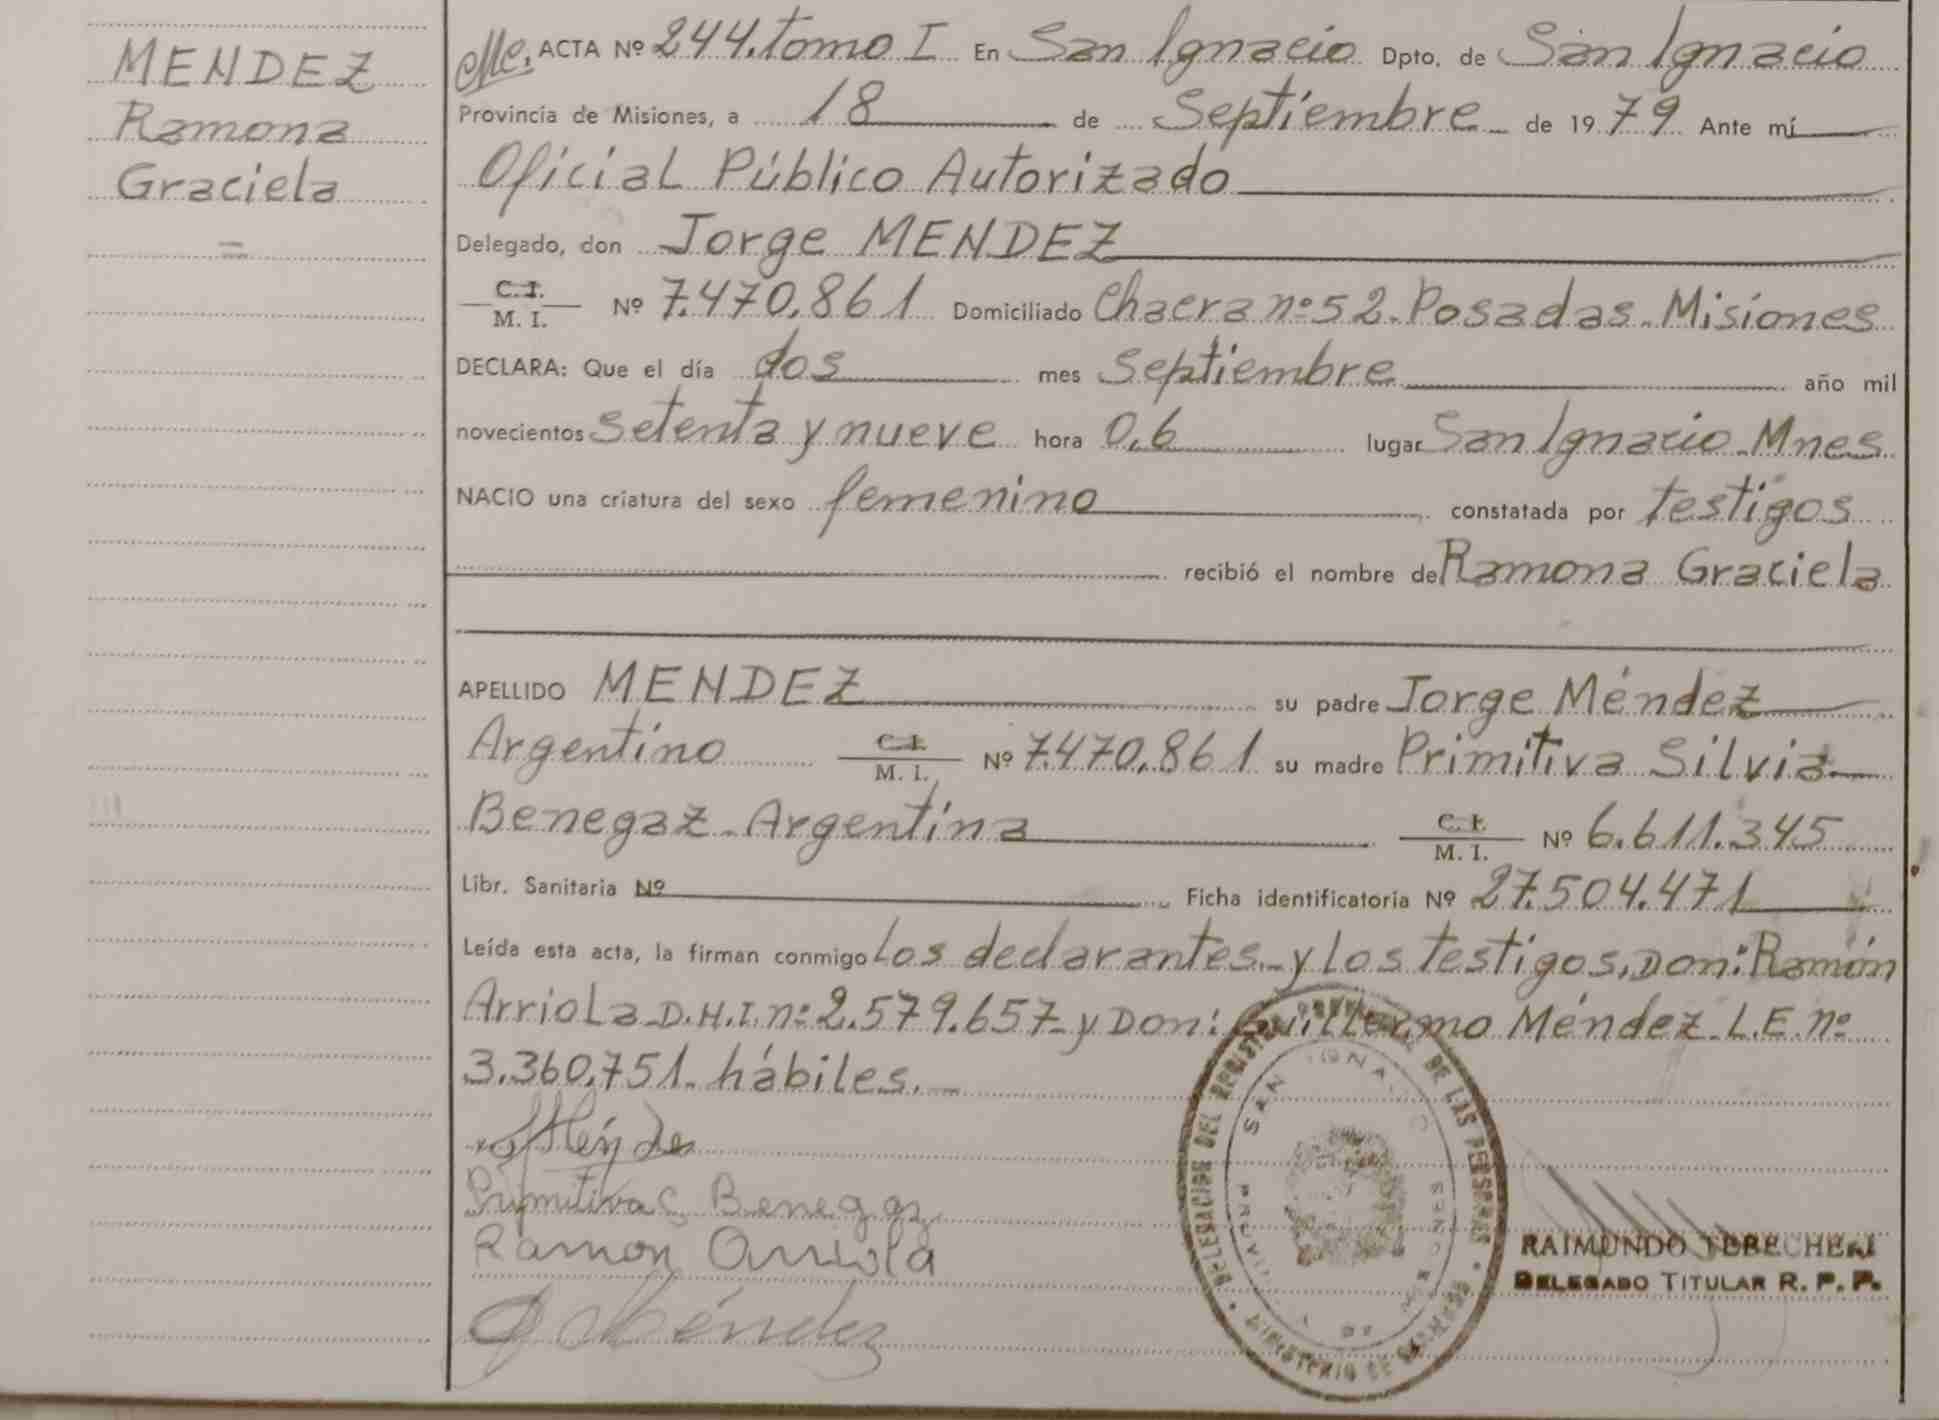 MENDEZ
Ramona
Graciela
=
ACTA Nº 244. tomo I En San Ignacio Dpto. de San Ignacio
Provincia de Misiones, a 18 de Septiembre de 1979 Ante mí
Oficial Público Autorizado
Delegado, don Jorge MENDEZ
C.I. / M. I. Nº 7.470.861 Domiciliado Chacra nº 52. Posadas. Misiones
DECLARA: Que el día dos mes Septiembre año mil
novecientos Setenta y nueve hora 0,6 lugar San Ignacio. Mnes
NACIO una criatura del sexo femenino constatada por testigos
recibió el nombre de Ramona Graciela
APELLIDO MENDEZ su padre Jorge Méndez
Argentino C.I. / M. I. Nº 7.470.861 su madre Primitiva Silvia
Benegaz - Argentina C.I. / M. I. Nº 6.611.345
Libr. Sanitaria Nº Ficha identificatoria Nº 27.504.471
Leída esta acta, la firman conmigo los declarantes - y los testigos, Don: Ramón
Arriola D.N.I. nº 2.579.657 - y Don: Guillermo Méndez. L.E. nº
3.360.751. hábiles. -
Primitiva S Benegaz
Ramon Arriola
Méndez
DELEGACION DEL REGISTRO PROVINCIAL DE LAS PERSONAS
MINISTERIO DE GOBIERNO
SAN IGNACIO
PROVINCIA DE MISIONES
RAIMUNDO TERECHEN
DELEGADO TITULAR R. P. P.